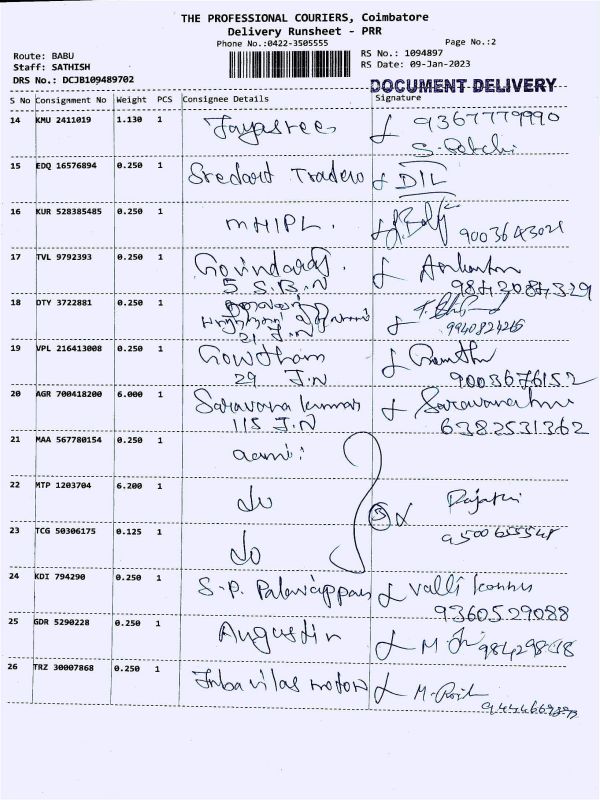 THE PROFESSIONAL COURIERS, Coimbatore
Delivery Runsheet - PRR
Phone No.:0422-3505555 Page No.:2
Route: BABU RS No.: 1094897
Staff: SATHISH RS Date: 09-Jan-2023
DRS No.: DCJB109489702
DOCUMENT DELIVERY
S No Consignment No Weight PCS Consignee Details Signature
14 KMU 2411019 1.130 1 Jayasree 9367779990
15 EDQ 16576894 0.250 1 Traders DIL
16 KUR 528385485 0.250 1 MHIPL. 9003643021
17 TVL 9792393 0.250 1 Govindaraj.
5 S.B.N 9843084329
18 DTY 3722881 0.250 1
21 J.N
19 VPL 216413008 0.250 1 Gowtham
29 J.N 9003676152
20 AGR 700418200 6.000 1 Saravana kumar
115 J.N 6382531362
21 MAA 567780154 0.250 1
22 MTP 1203704 6.200 1 do
3
23 TCG 50306175 0.125 1 do
24 KDI 794290 0.250 1 S.P. Palaniappan Valli
9360529088
25 GDR 5290228 0.250 1 Augustin M
26 TRZ 30007868 0.250 1 motors